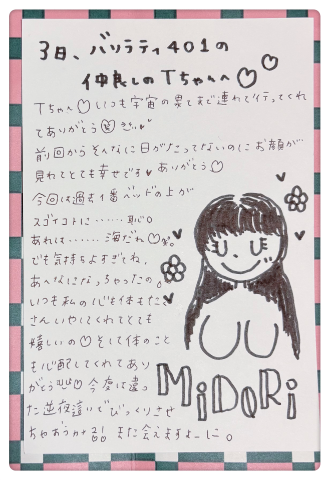 3日、バリラティ401の
仲良しのTちゃんへ♡♡
Tちゃん♡いつも宇宙の果てまで連れて行ってくれ
てありがとう
前回からそんなに日がたってないのにお顔が
見れてとても幸せです♥ありがとう♡
今回は過去1番ベッドの上が
スゴイコトに……恥。
あれは……海だね♡
でも気持ちよすぎてね、
あへなになっちゃったの。
いつも私の心も体もたく
さんいやしてくれてとても
嬉しいの♡そして体のこと
も心配してくれてあり
がとう 今度は違っ
た逆夜這いでびっくりさせ
ちゃおうか!! また会えますよーに。
MiDORi